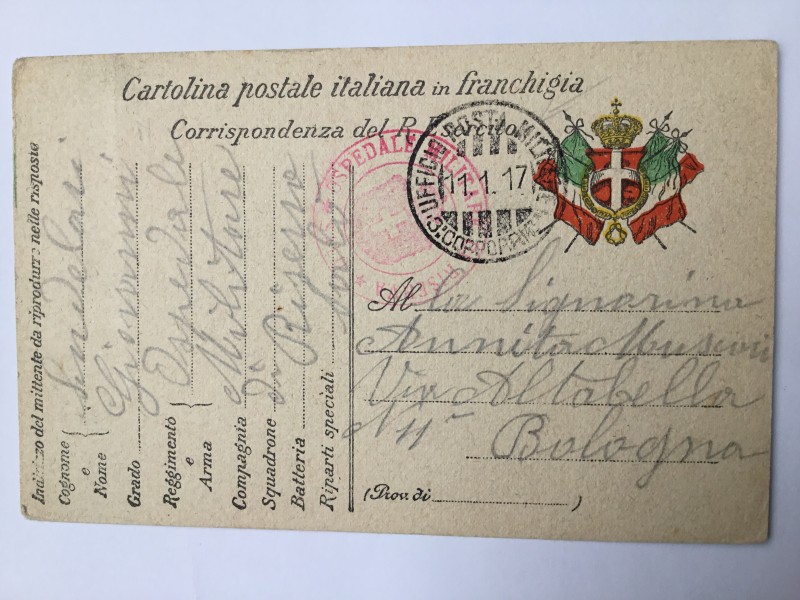 Cartolina postale italiana in franchigia
Corrispondenza del R. Esercito
UFFICIO POSTA MILITARE
11.1.17
3° CORPO D'ARMATA
OSPEDALE MILITARE
RISERVA
Al la Signorina
Annita
Via Altabella
N 11
Bologna
(Prov. di )
Indirizzo del mittente da riprodurre nelle risposte
Cognome e Nome {
Giovanni
Grado
Reggimento e Arma {
Ospedale
Compagnia Militare
Squadrone di Riserva
Batteria
Riparti speciali Salò